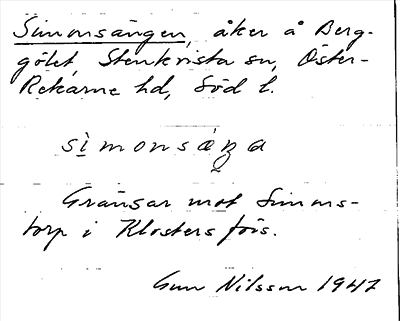 Simonsängen, åker å Berg-
gölet, Stenkvista sn, Öster-
Rekarne hd, Söd l.
sìmonsáŋa
Gränsar mot Simons-
torp i Klosters förs.
Gun Nilsson 1947